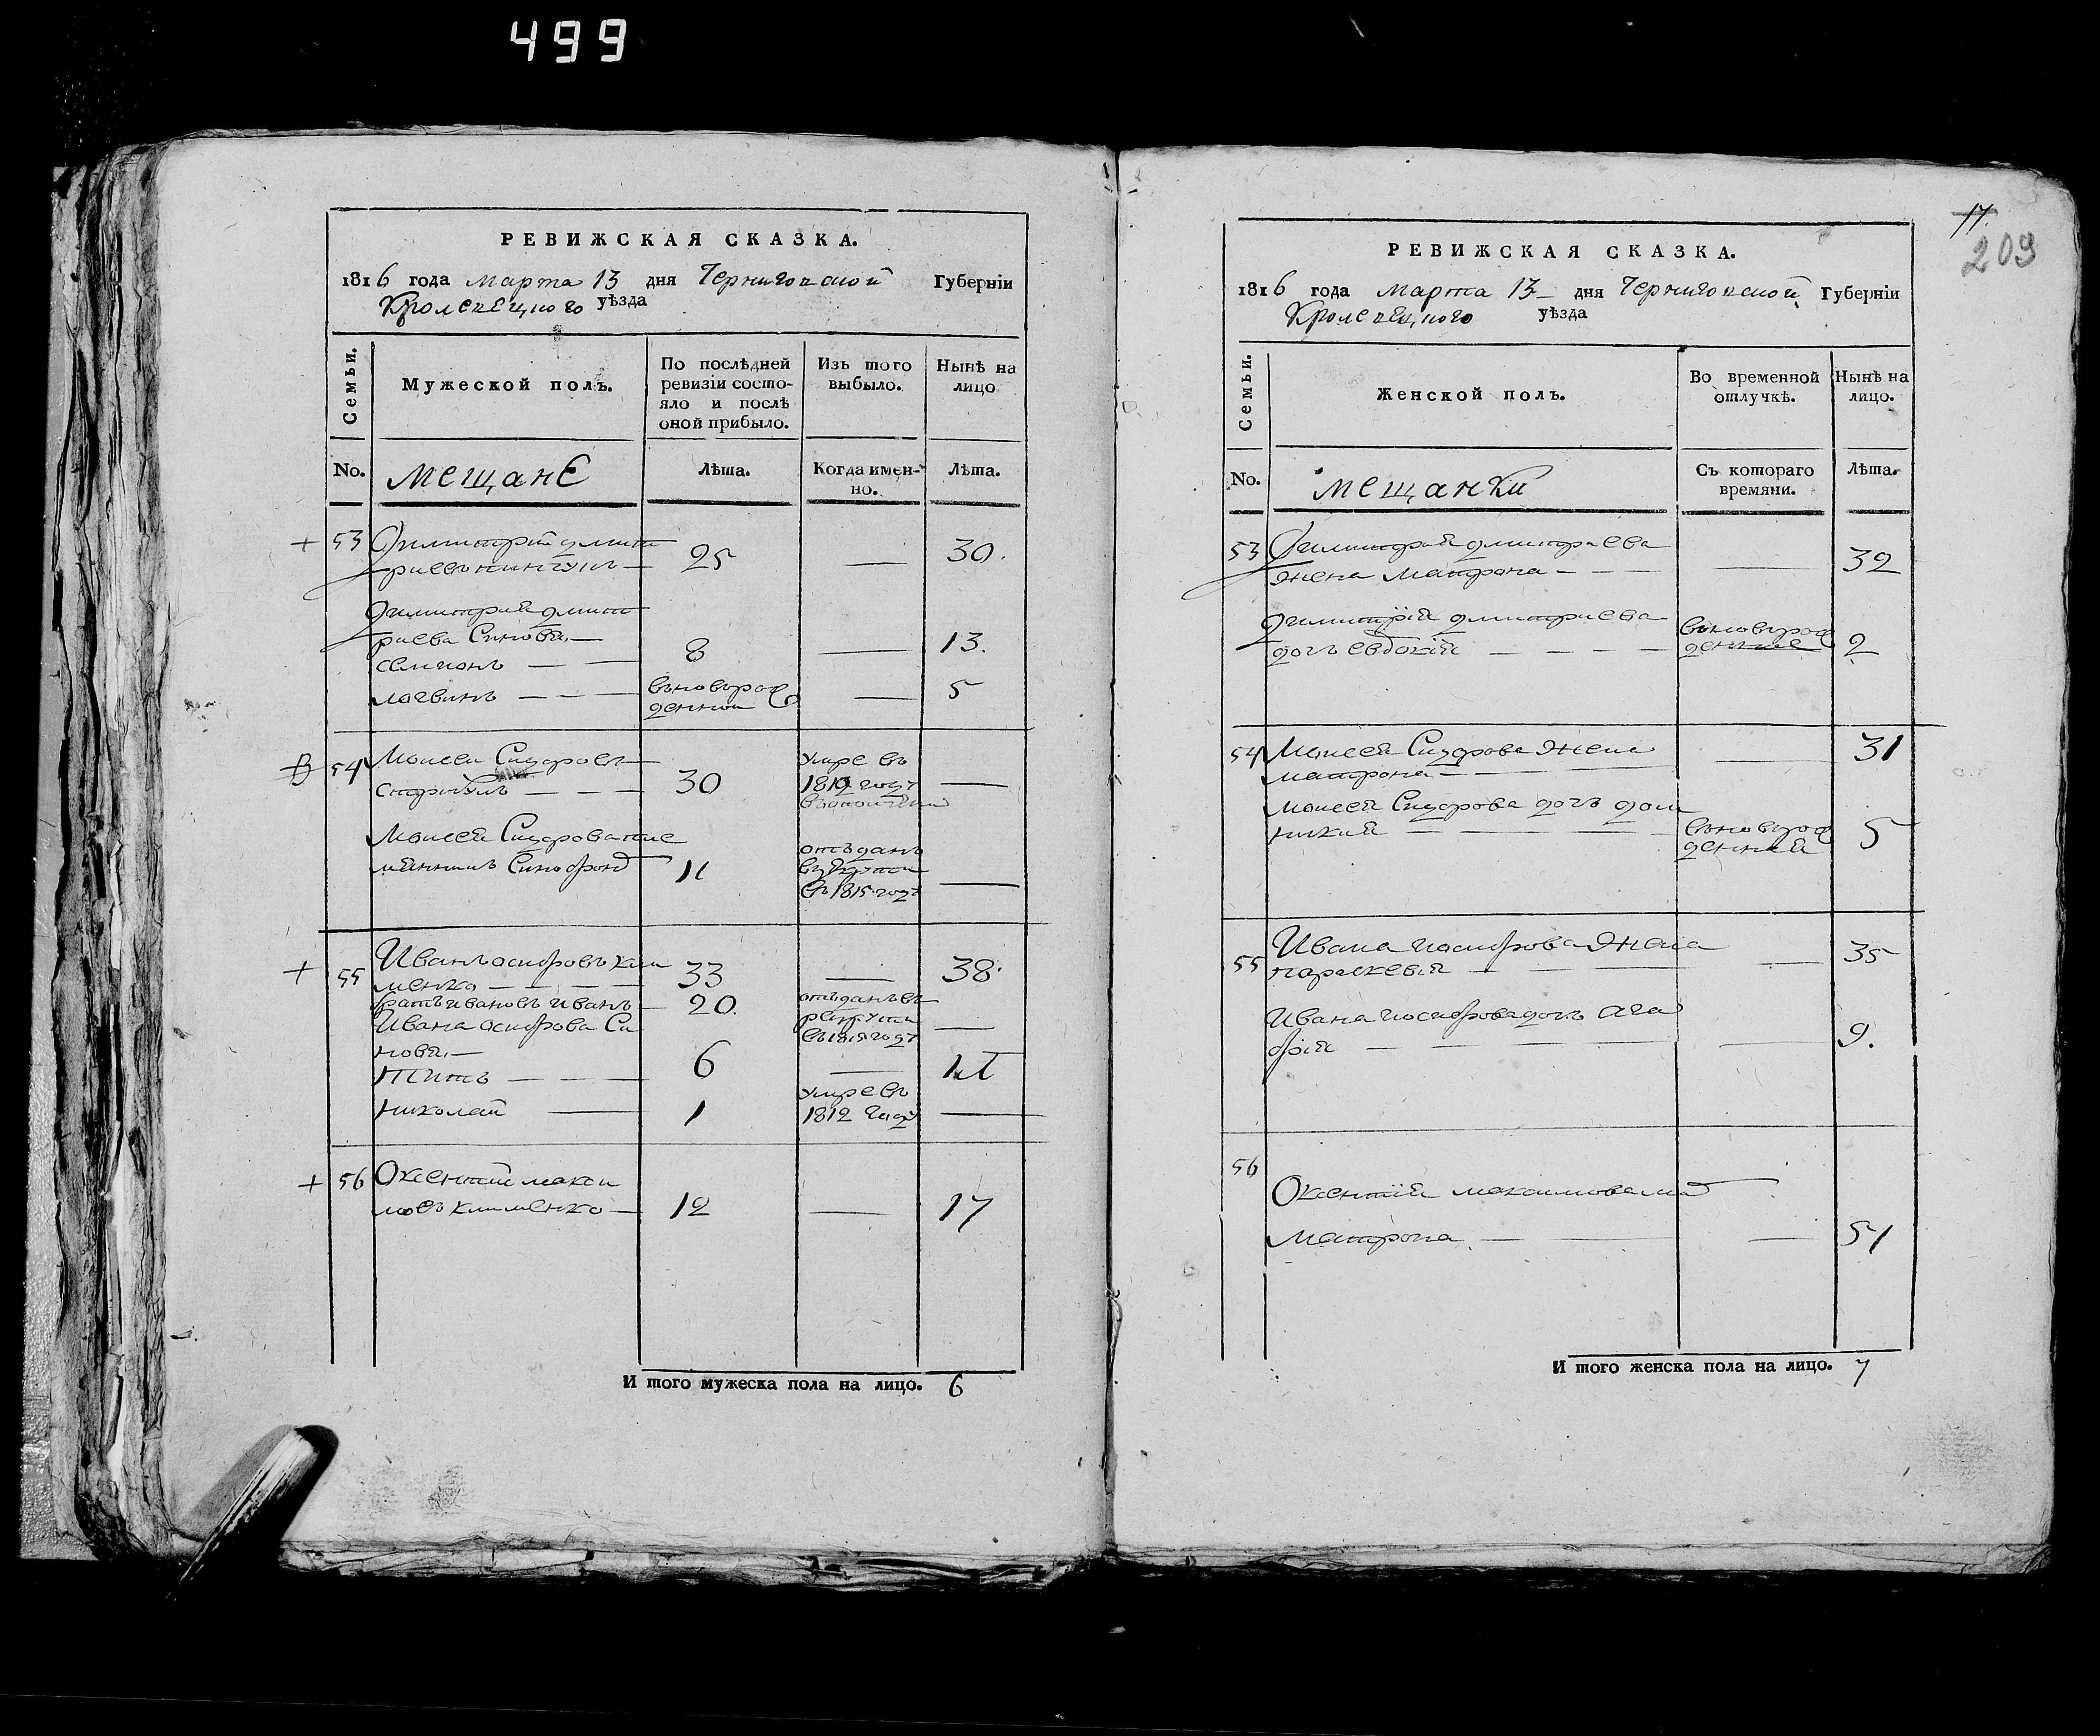 499
РЕВИЖСКАЯ СКАЗКА.
1816 года марта 13 дня Черниговской Губерніи
Кролевецкого уѣзда
Семьи.
Мужеской полъ.
По послѣдней
ревизіи состо-
яло и послѣ
оной прибыло.
Изъ того
выбыло.
Нынѣ на
лицо
No.
мещане
Лѣта.
Когда имен-
но.
Лѣта.
53 Димитрій дмит
риевъ 25 — 30.
димитрий дмит
риева Синовя —
семионъ — — 8 — 13.
логвинъ — — — въноворож
денной — 5
54 Моисей Сидоровъ
30 умре въ
1812 году —
Моисей Сидорова пле
мянникъ 11 отъданъ
въ рекруты
въ 1815 году —
55 Иванъ осифовъ кли
менко — — — 33 — 38.
братъ ивановъ иванъ — 20. отъданъ въ
рекруты
году —
Ивана осифова Си
новя —
Титъ — — — 6 — 11
николай — 1 умре въ
1812 году —
56 Оксентий макси
мовъ клименко — 12 — 17
И того мужеска пола на лицо. 6
17.
209
РЕВИЖСКАЯ СКАЗКА.
1816 года марта 13 дня Черниговской Губерніи
Кролевецкого уѣзда
Семьи.
Женской полъ.
Во временной
отлучкѣ.
Нынѣ на
лицо.
No.
мещанки
Съ котораго
времяни.
Лѣта.
53 Димитрий дмитриева
жена матрона — — — — 32
димитрій дмитриева
дочъ евдокия — — — — въноворож
денная 2
54 Моисея Сидорова жена
матрона — — — — 31
моисея Сидорова дочъ дом
никия — — — — въноворож
денная 5
55 Ивана иосифова жена
параскевия — — — — 35
Ивана иосифова дочъ ага
фия — — — — — 9.
56
Оксентия максимова мат
матрона — — — 51
И того женска пола на лицо. 7